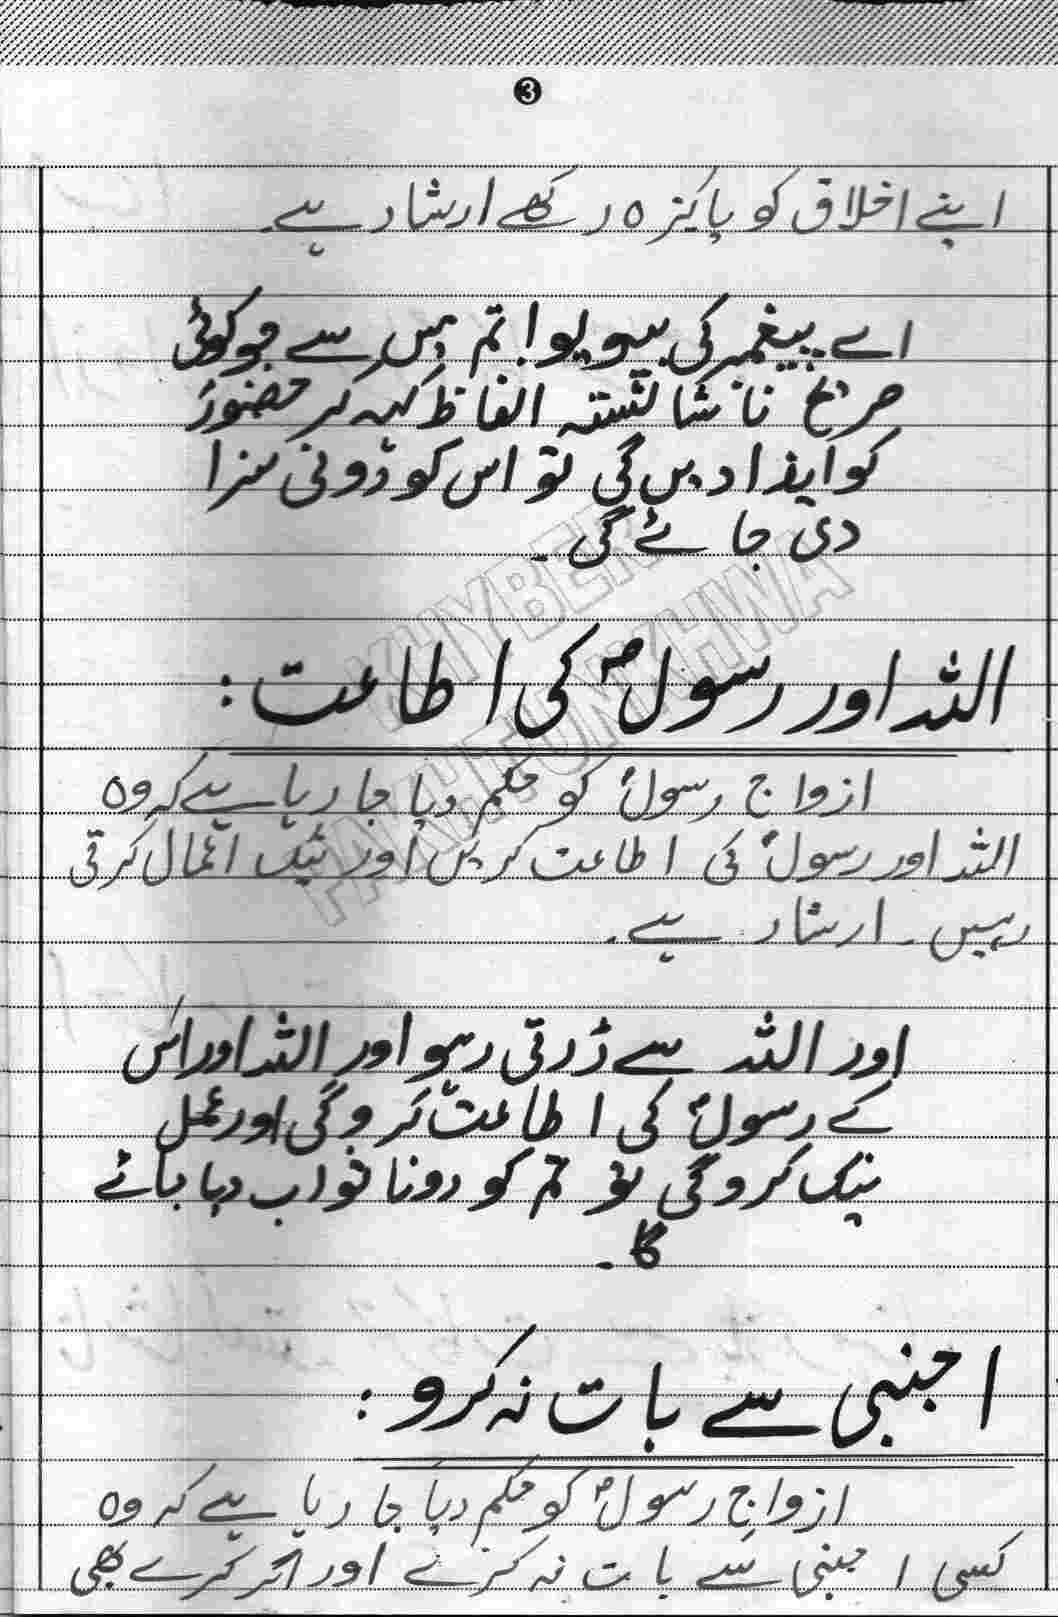 3
اپنے اخلاق کو پاکیزہ رکھے ارشاد ہے۔
اے پیغمبر کی بیویو! تم میں سے جو کوئی
صریح ناشائستہ الفاظ کہہ کر حضورؐ
کو ایذا دیں گی تو اس کو دونی سزا
دی جائے گی۔
KHYBER
PAKHTUNKHWA
اللہ اور رسولؐ کی اطاعت :
ازواج رسولؐ کو حکم دیا جا رہا ہے کہ وہ
اللہ اور رسولؐ کی اطاعت کریں اور نیک اعمال کرتی
رہیں۔ ارشاد ہے۔
اور اللہ سے ڈرتی رہو اور اللہ اور اس
کے رسولؐ کی اطاعت کروگی اور عمل
نیک کروگی تو تم کو دونا ثواب دیا جائے
گا۔
اجنبی سے بات نہ کرو :
ازواج رسولؐ کو حکم دیا جا رہا ہے کہ وہ
کسی اجنبی سے بات نہ کرے اور اگر کرے بھی